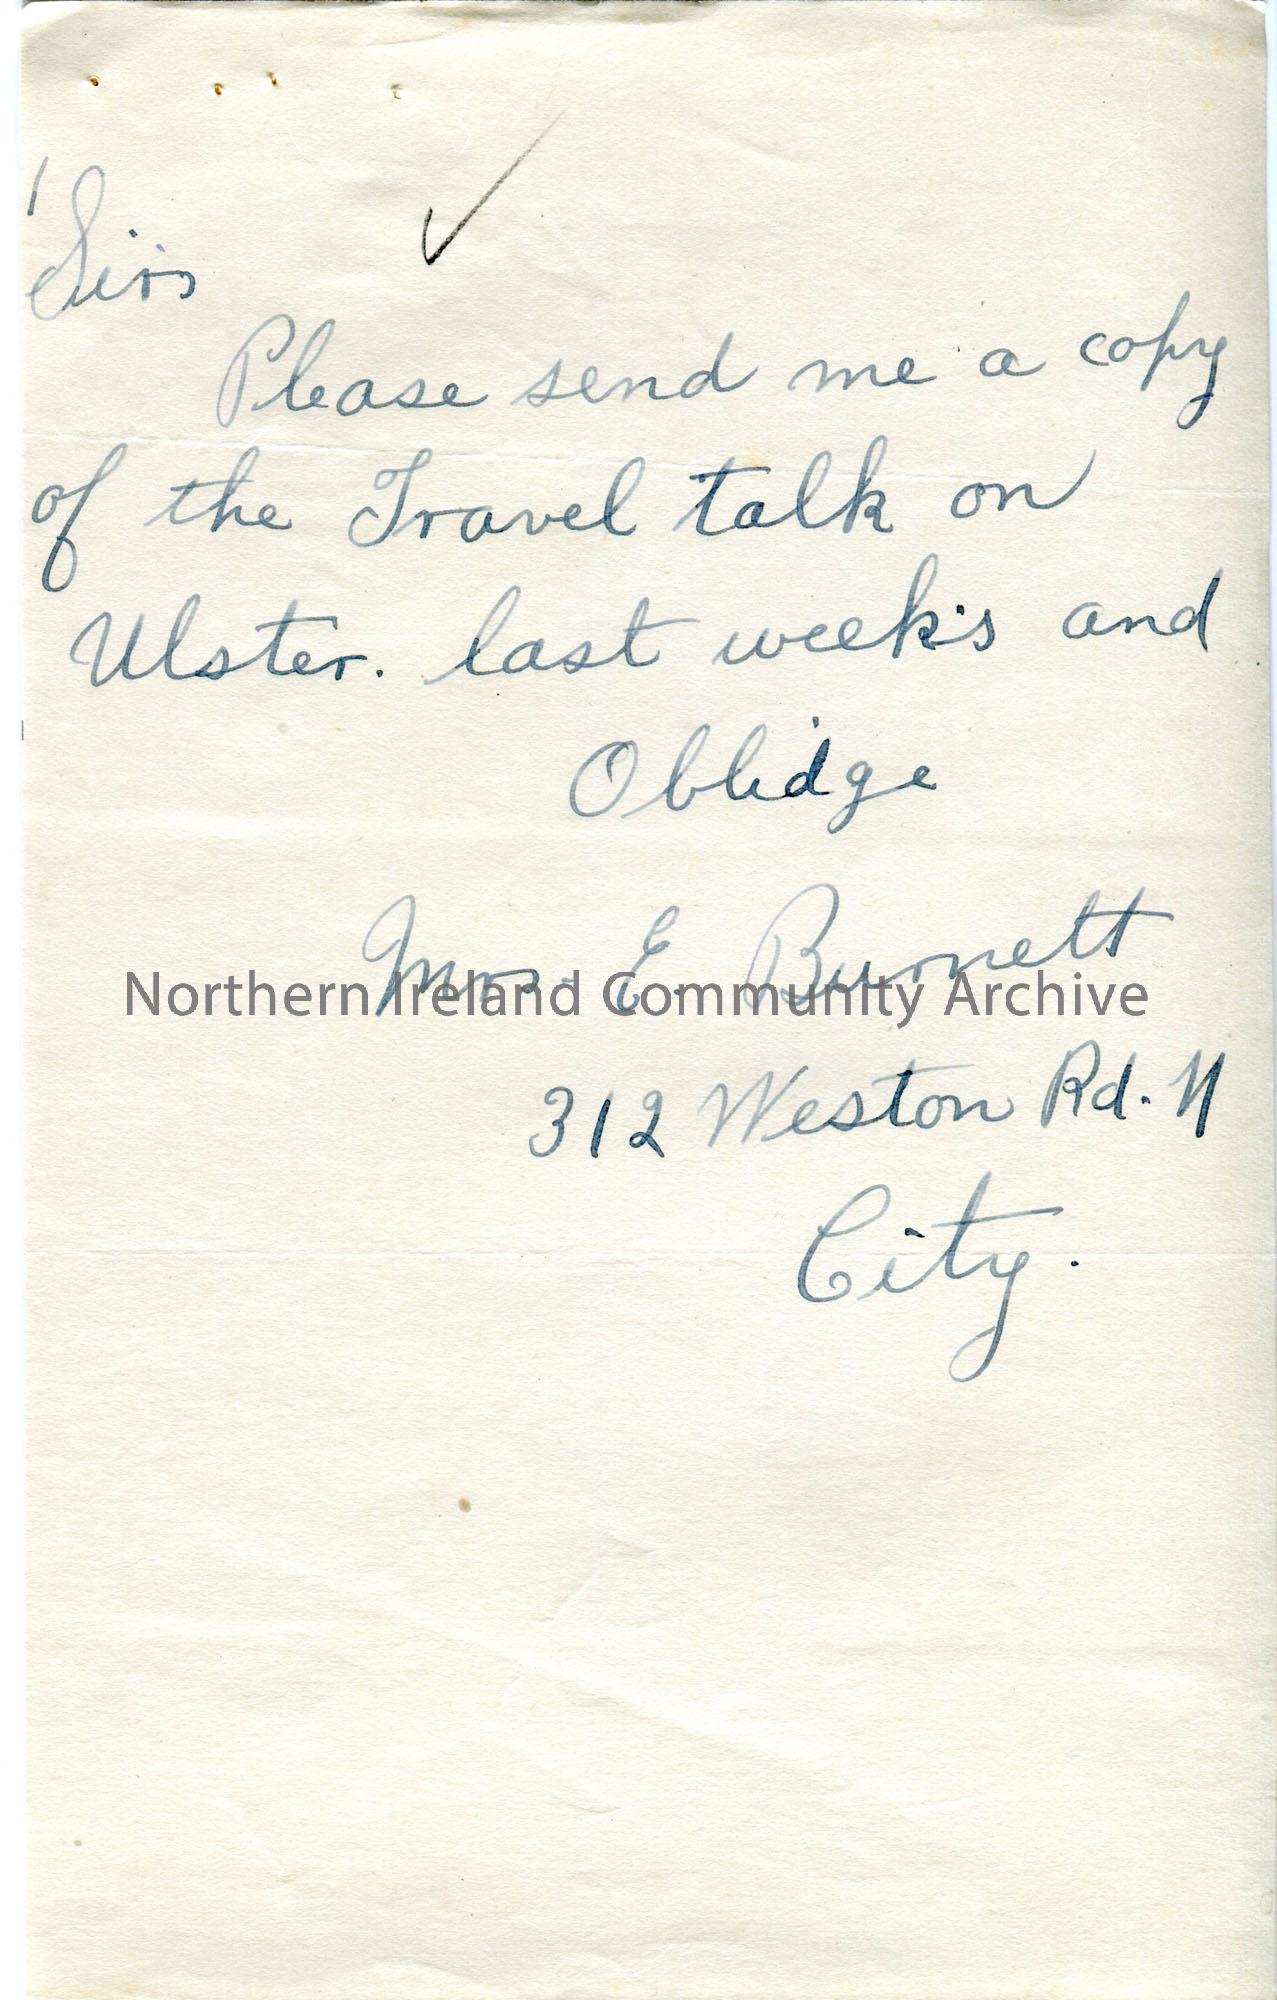 Sirs
Please send me a copy
of the Travel talk on
Ulster. last week's and
Oblidge
Mrs E. Burnett
Northern Ireland Community Archive
312 Weston Rd. N
City.